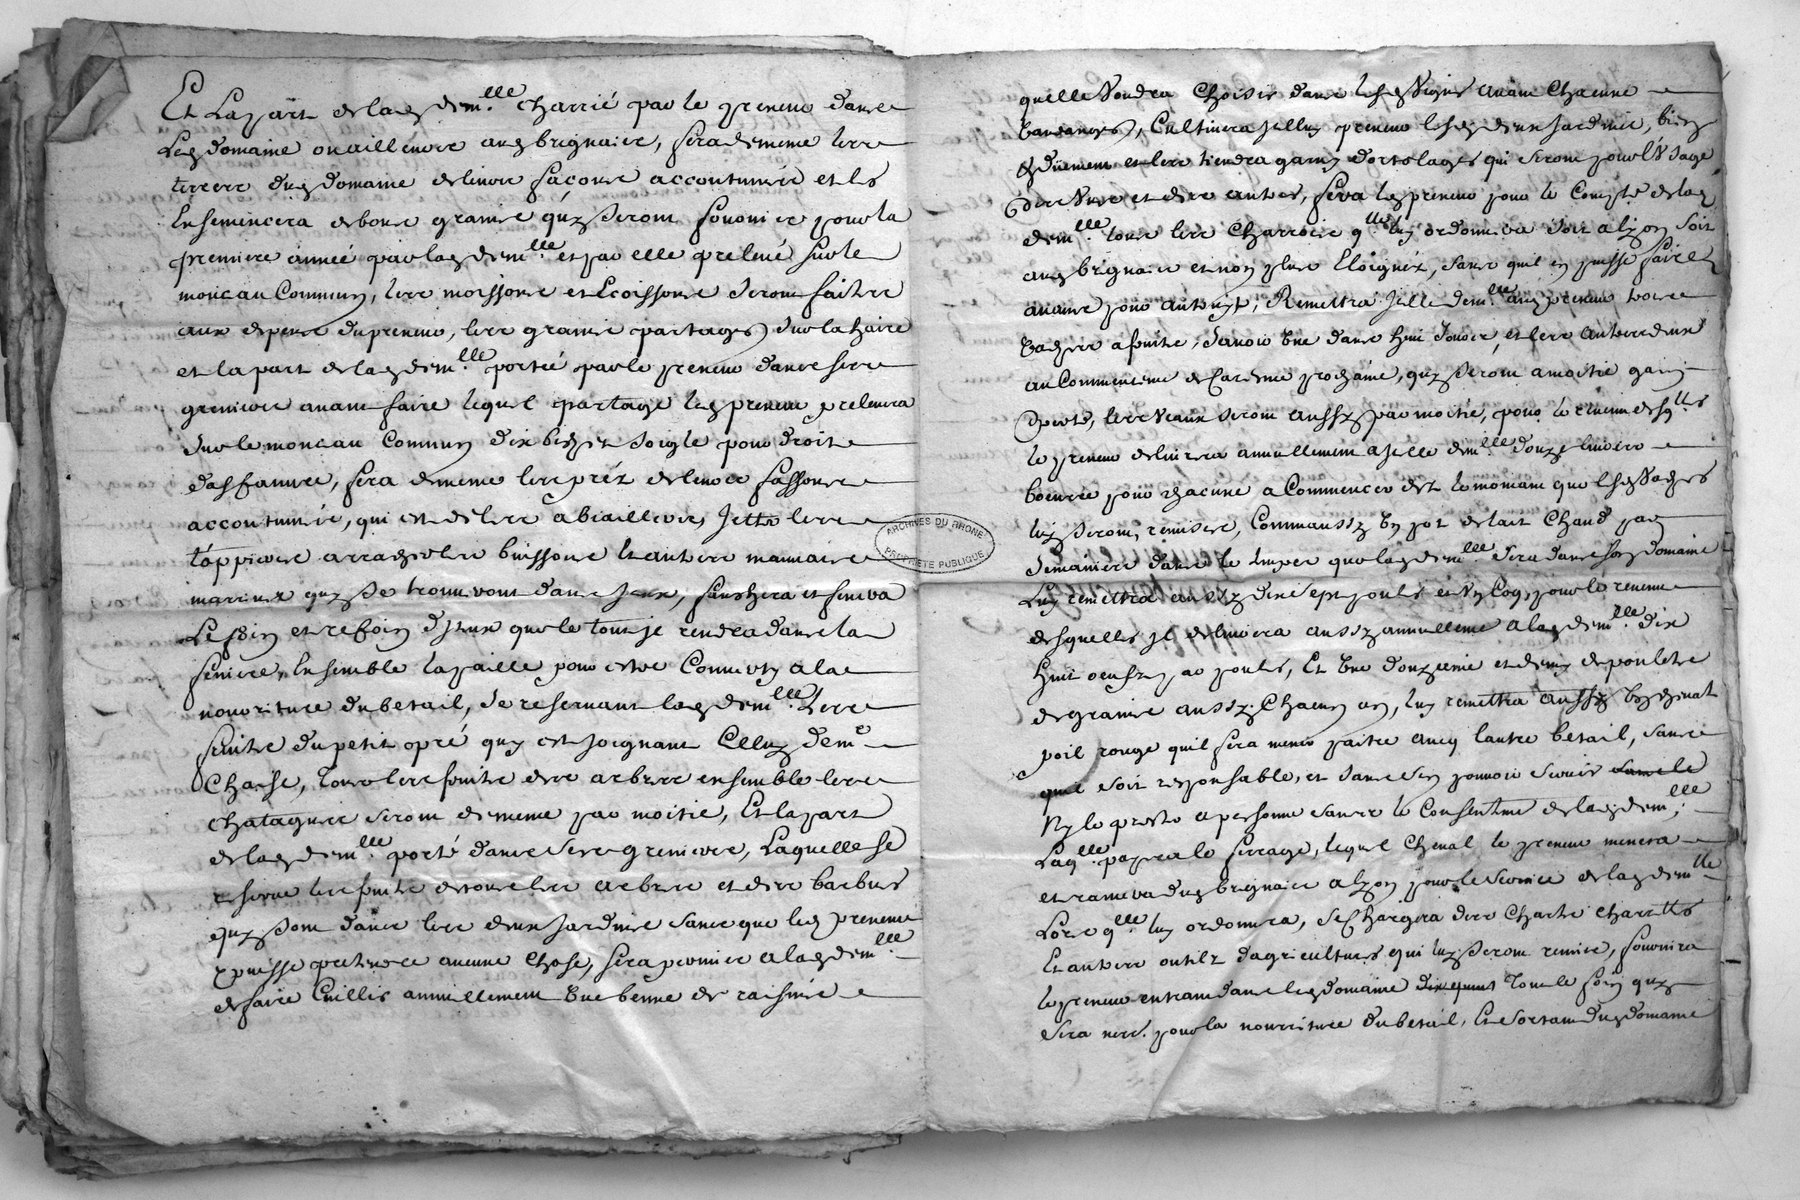 Et la part de lad dem.lle charrié par le preneur dans
led domaine ou ailleurs aud brignais, sera de meme les
terres dud domaine de leurs façons accoutumées et les
Ensemencera de bons grains quy seront fournis pour la
premiere année par lad dem.lle et par elle prelevé sur le
monceau Commun, les moissons et Ecoissons seront faittes
aux depens du preneur, les grains partagés sur la haire
et la part de lad dem.lle portée par le preneur dans ses
greniers avant faire lequel partage led preneur prelevera
sur le monceau Commun dix bichets soigle pour droit
daffanure, fera de meme les préz de leurs fassons
accoutumées, qui est de les abiaillerer, Jetter les
tappieres arracher les buissons et autres mauvaises
quy se trouveront dans Jceux, fauchera et fenera
Le foin et refoin d'Jceux que le tout se rendra dans la
feniere, Ensemble la paille pour estre Converty a la
nourriture du betail, se reservant lad dem.lle Les
fruits du petit pré quy est Joignant Celluy de m.e
Chasse, tous les fruits des arbres ensemble les
chatagnes seront de meme par moitié, Et la part
de lad dem.lle porté dans ses greniers, Laquelle se
reserve les fruits de tous les arbres et des barbues
quy sont dans les deux Jardins sans que led preneur
y puisse pretendre aucune chose, sera permis a lad dem.lle
de faire Cuillir annuellement Une benne de raisins
quelle Voudra Choisir dans lesd Vignes avant Chacune
Vandanges, Cultivera Jcelluy preneur lesd deux Jardins, bien
et düement et les tiendra garnis d'ortolages qui seront pour l'Usage
des Uns et des autres, fera led preneur pour le Compte de lad
dem.lle tous les Charrois q.lle luy ordonnera soit a lyon soit
aud brignais et non plus Eloignéz, sans quil en puisse faire
aucuns pour autruy, Remettra Jcelle dem.lle aud preneur trois
Vaches a fruits, scavoir Une dans huit Jours, et les autres deux
au Commencement de Careme prochaine, quy seront a moitié gain
et perte, les Veaux seront aussy par moitié, pour le revenu desq.lles
le preneur delivrera annuellement a Jcelle dem.lle douze livres
beurre pour chacune a Commencer dez le moment que lesd Vaches
luy seront remises, Comme aussy Un pot de lait Chaud par
semaine dans le temps que lad dem.lle sera dans son domaine
Luy remettra aussy dix sept poules et Un Coq, pour le revenu
desquelles Jl delivrera aussy annuellement a lad dem.lle dix
huit oeufs par poules, Et Une douzaine et demy de poulets
de grains aussy Chacun an, luy remettra aussy Un cheval
poil rouge quil fera mener paitre avecq lautre betail, sans
quil soit responsable, et sans sen pouvoir servir sans le
Ny le prester a personne sans le Consentement de lad dem.lle
Laq.lle payera le ferrage, lequel Cheval le preneur menera
et ramenera dud brignais a lyon pour le service de lad dem.lle
Lors q.lle luy ordonnera, se Chargera des Chars charettes
Et autres outils d'agricultures qui luy seront remis, fournira
le preneur entrant dans led domaine dix quint Tout le foin quy
sera necess. pour la nourriture du betail, Et sortant dud domaine
ARCHIVES DU RHONE
PROPRIETE PUBLIQUE